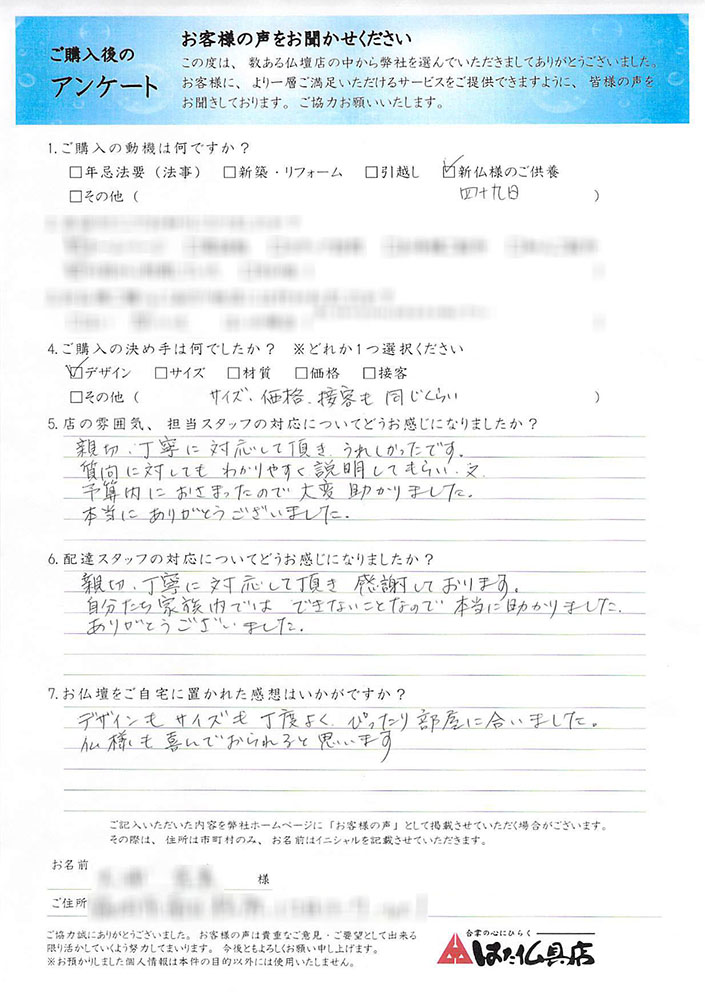 ご購入後の
アンケート
お客様の声をお聞かせください
この度は、数ある仏壇店の中から弊社を選んでいただきましてありがとうございました。
お客様に、より一層ご満足いただけるサービスをご提供できますように、皆様の声を
お聞きしております。ご協力お願いいたします。
1.ご購入の動機は何ですか？
□年忌法要（法事） □新築・リフォーム □引越し ☑新仏様のご供養
□その他（ 四十九日 ）
4.ご購入の決め手は何でしたか？ ※どれか1つ選択ください
☑デザイン □サイズ □材質 □価格 □接客
□その他（ サイズ、価格、接客も同じくらい ）
5.店の雰囲気、担当スタッフの対応についてどうお感じになりましたか？
親切、丁寧に対応して頂き うれしかったです。
質問に対しても わかりやすく説明してもらい、又、
予算内に おさまったので 大変 助かりました。
本当に ありがとうございました。
6.配達スタッフの対応についてどうお感じになりましたか？
親切、丁寧に対応して頂き 感謝しております。
自分たち家族内では できないことなので 本当に助かりました。
ありがとうございました。
7.お仏壇をご自宅に置かれた感想はいかがですか？
デザインも サイズも 丁度よく、ぴったり 部屋に合いました。
仏様も喜んでおられると思います
ご記入いただいた内容を弊社ホームページに「お客様の声」として掲載させていただく場合がございます。
その際は、住所は市町村のみ、お名前はイニシャルを記載させていただきます。
お名前 様
ご住所
ご協力誠にありがとうございました。お客様の声は貴重なご意見・ご要望として出来る
限り活かしていくよう努力してまいります。今後ともよろしくお願い申し上げます。
※お預かりしました個人情報は本件の目的以外には使用いたしません。
合掌の心にひらく
はた仏具店